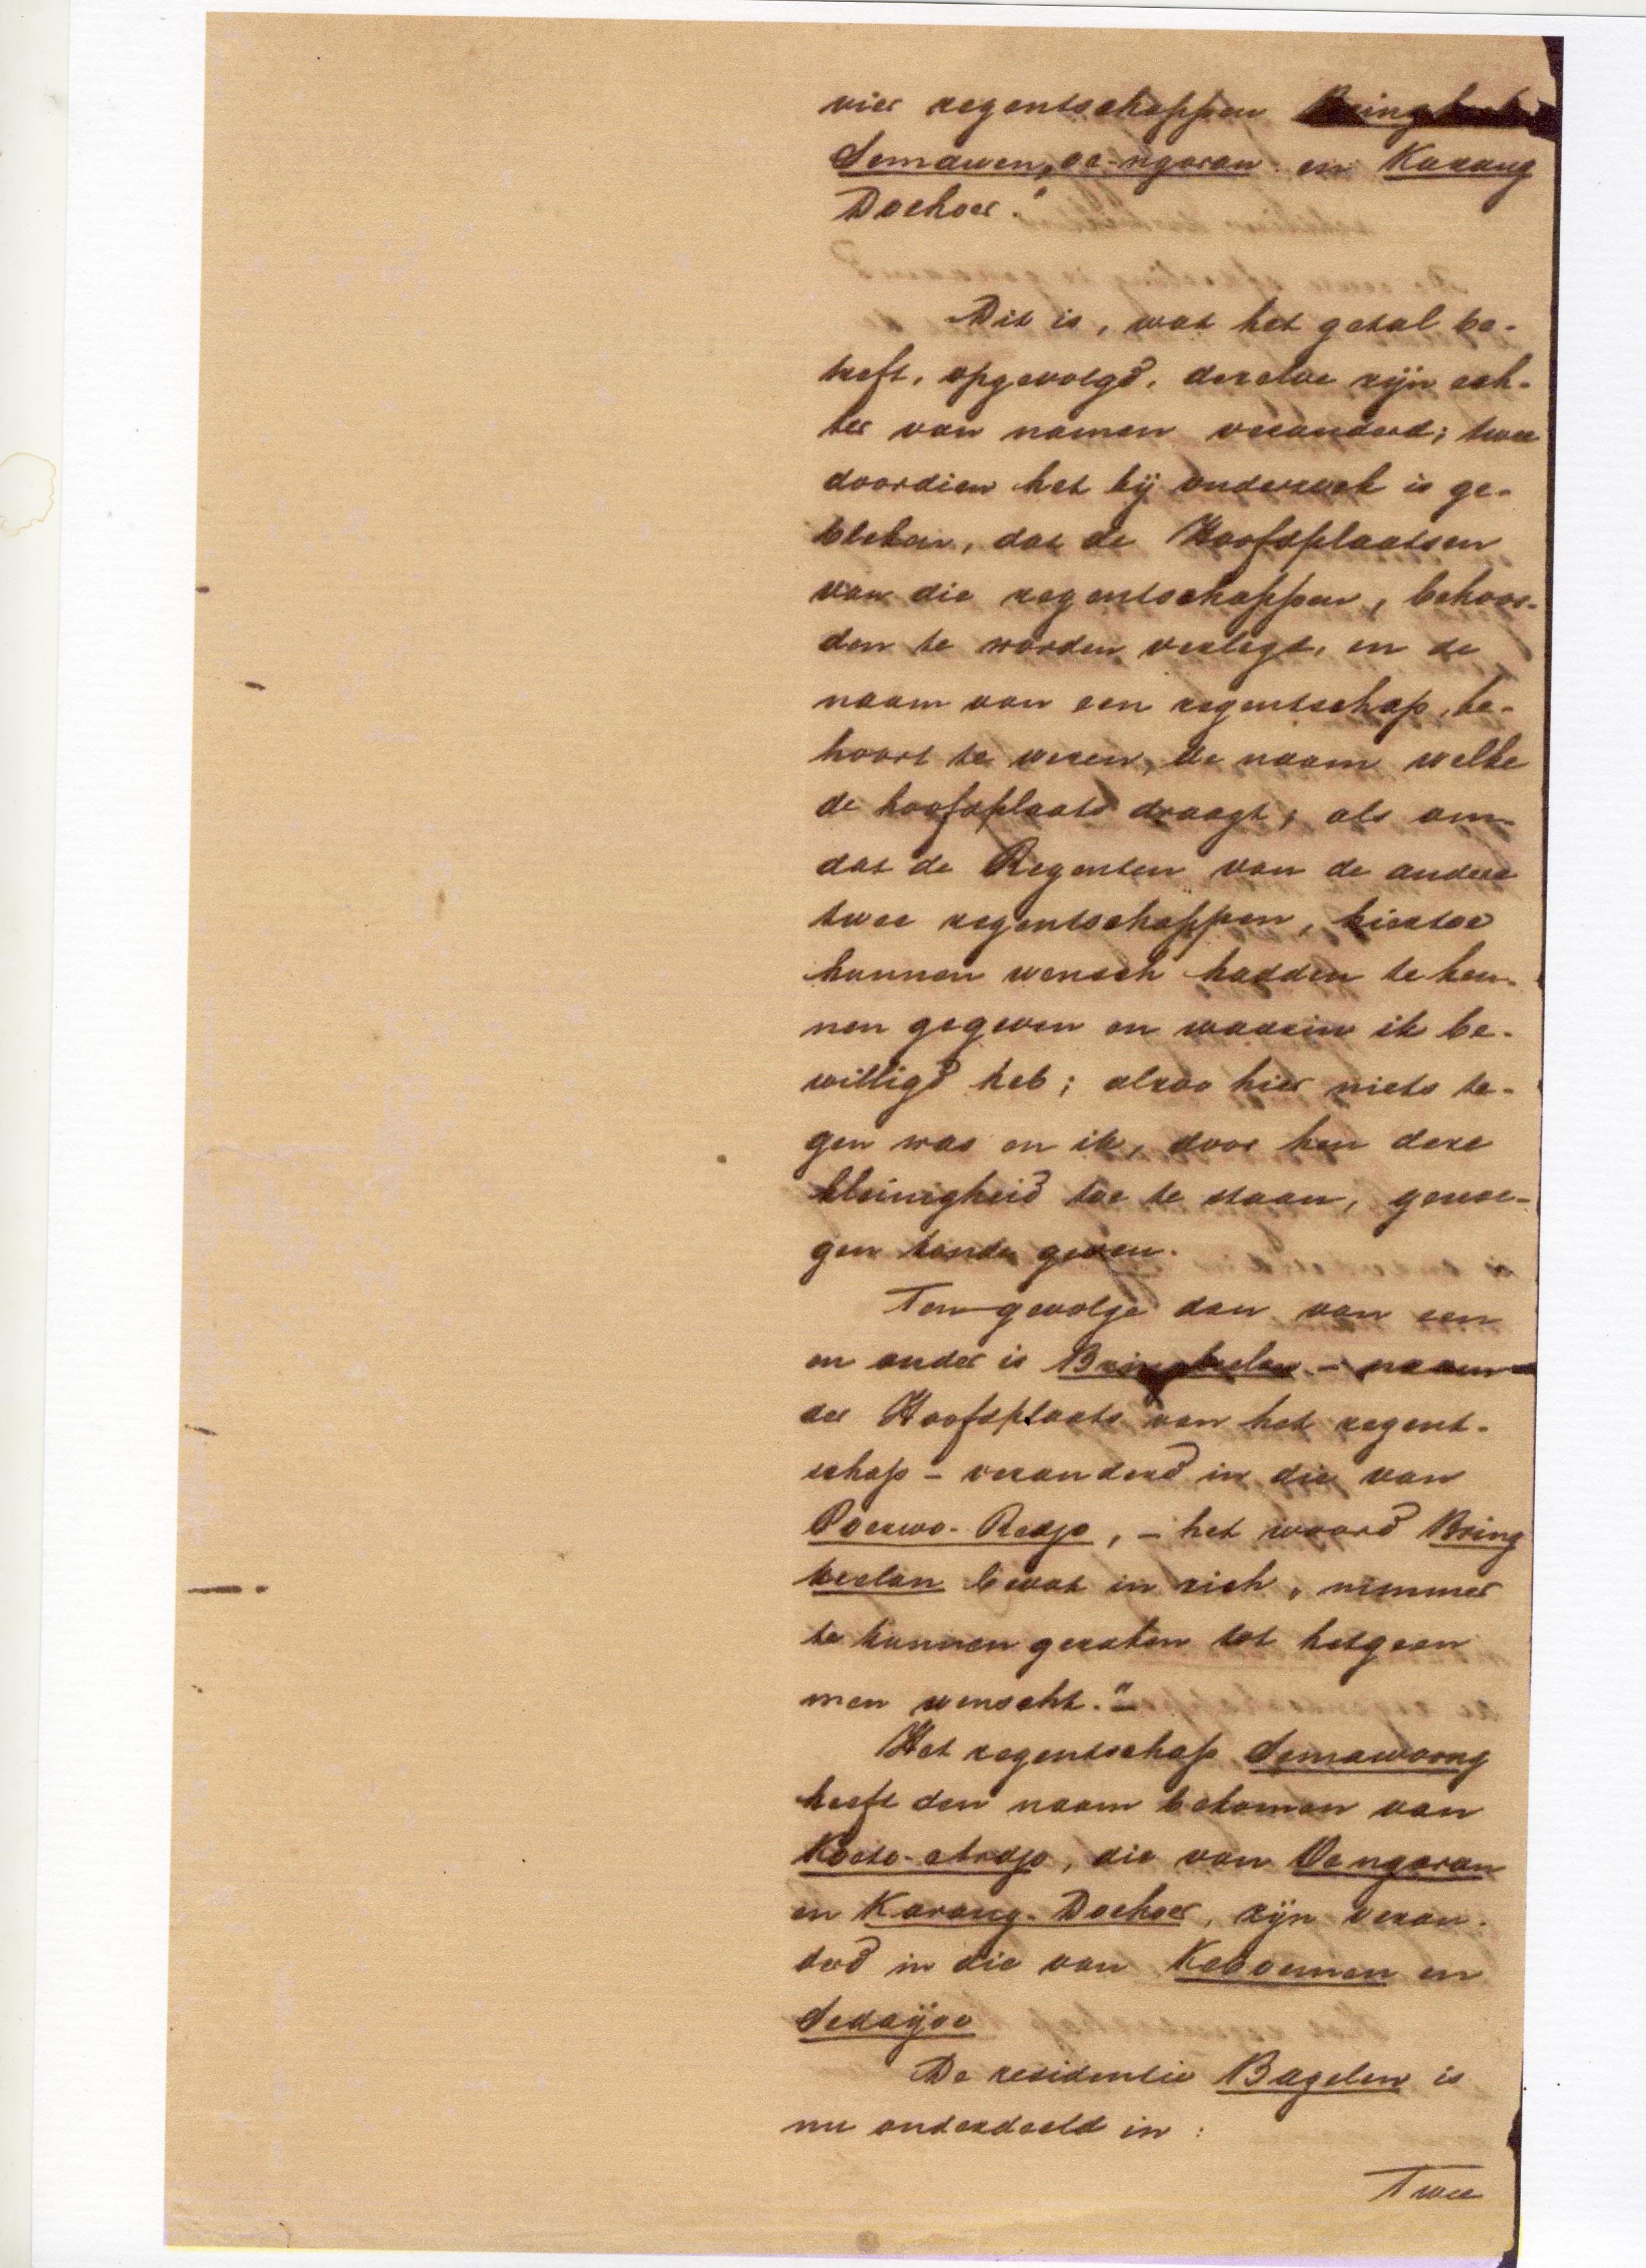 vier regentschappen Bring
Semawen, oe-ngaran en Karang
Doehoer."
Dit is, wat het getal be-
treft, opgevolgd, dezelve zijn ech-
ter van namen veranderd; twee
doordien het bij onderzoek is ge-
bleken, dat de Hoofdplaatsen
van die regentschappen, behoor-
den te worden verlegt, en de
naam van een regentschap, be-
hoort te wezen, de naam welke
de hoofdplaats draagt; als om-
dat de Regenten van de andere
twee regentschappen, hiertoe
hunnen wensch hadden te ken-
nen gegeven en waarin ik be-
willigd heb; alzoo hier niets te-
gen was en ik, door hen deze
kleinigheid toe te staan, genoe-
gen konde geven.
Ten gevolge dan van een
en ander is Bringkelan - naam
der Hoofdplaats van het regent-
schap - veranderd in die van
Poerwo-Redjo, - het woord Bring
kelan bevat in zich „nimmer
te kunnen geraken tot hetgeen
men wenscht."-
Het regentschap Semawoong
heeft den naam bekomen van
Koeto-ardjo, die van Oe ngaran
en Karang-Doehoer, zijn veran-
derd in die van Keboemen en
Sedaijoe
De residentie Bagelen is
nu onderdeeld in :
Twee